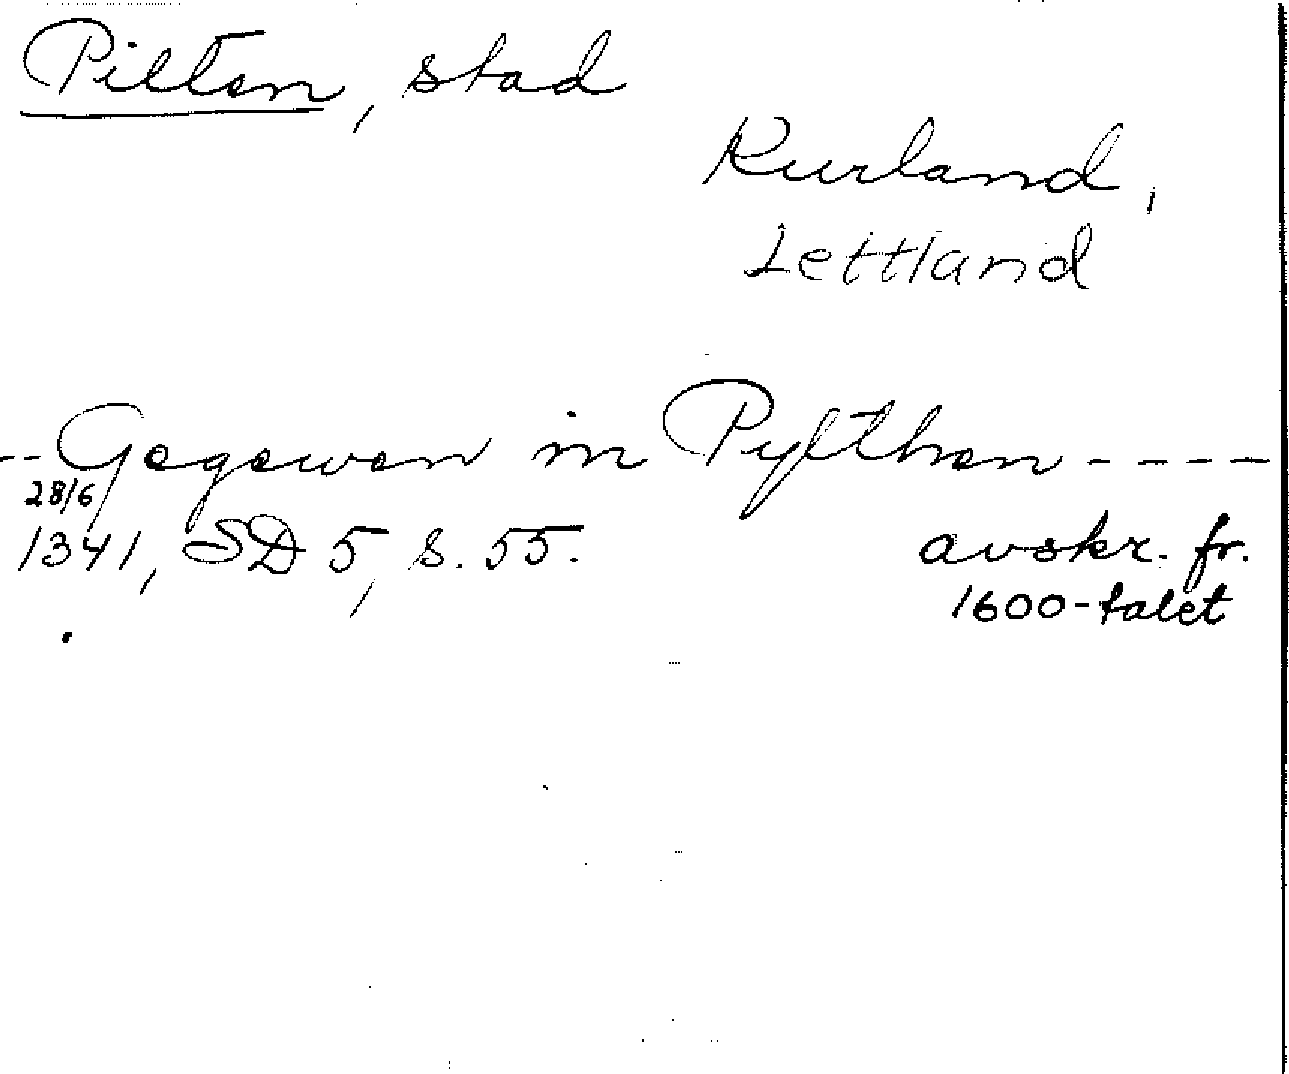 Pilten, stad
Kurland,
Lettland
-- Gegewen in Pylthen ----
28/6
1341, SD 5, s. 55.
avskr. fr.
1600-talet